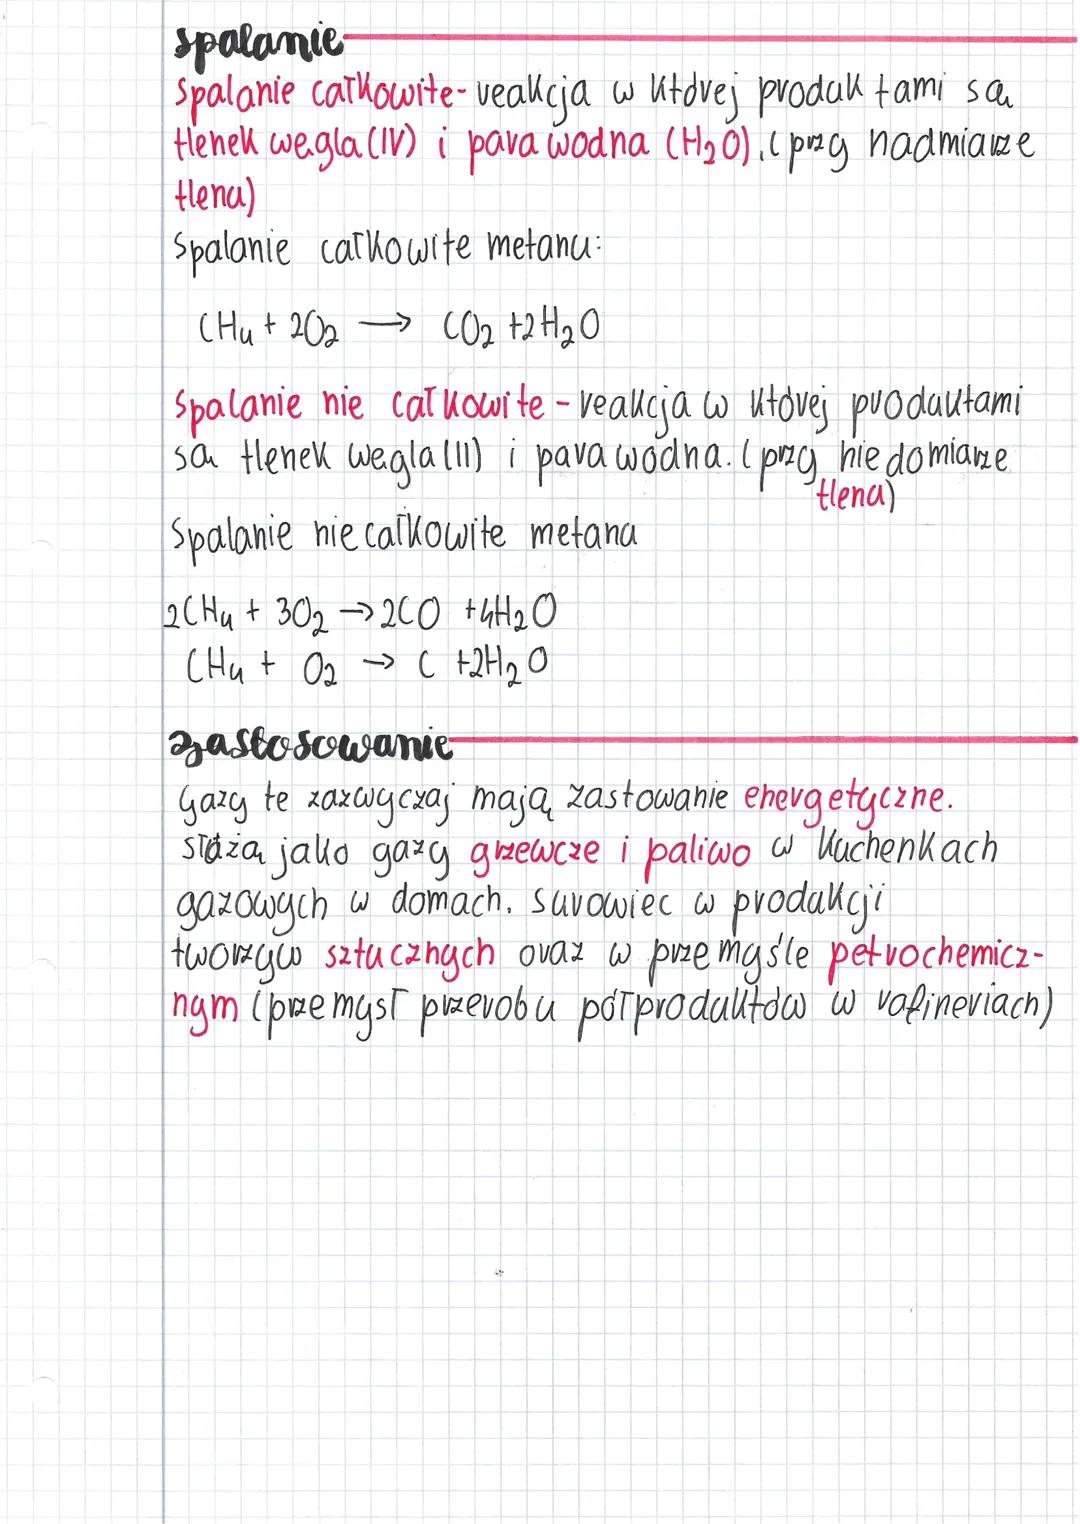 spalanie
Spalanie całkowite - reakcja w której produktami są
tlenek węgla (IV) i para wodna (H₂O). (przy nadmiarze
tlenu)
Spalanie całkowite metanu:
CH₄ + 2O₂ → CO₂ + 2H₂O
Spalanie nie całkowite - reakcja w której produktami
są tlenek węgla (II) i para wodna. (przy niedomiarze
tlenu)
Spalanie niecałkowite metanu
2CH₄ + 3O₂ → 2CO + 4H₂O
CH₄ + O₂ → C + 2H₂O
zastosowanie
Gazy te zazwyczaj mają zastowanie energetyczne.
służą jako gazy grzewcze i paliwo w kuchenkach
gazowych w domach. surowiec w produkcji
tworzyw sztucznych oraz w przemyśle petrochemicz-
nym (przemysł przerobu półproduktów w rafineriach)